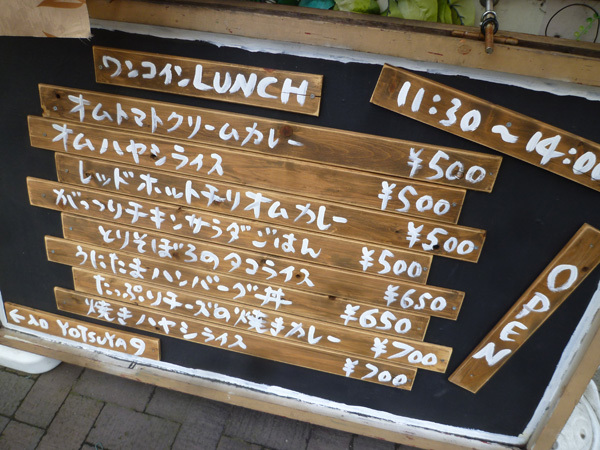 ワンコインLUNCH
11:30〜14:00
オムトマトクリームカレー ¥500
オムハヤシライス ¥500
レッドホルトチリオムカレー ¥500
がっつりチキンサラダごはん ¥500
とりそぼろのタコライス ¥650
うにたまハンバーグ丼 ¥650
たっぷりチーズの焼きカレー ¥700
焼きハヤシライス ¥700
OPEN
←入口 YOTSUYA9